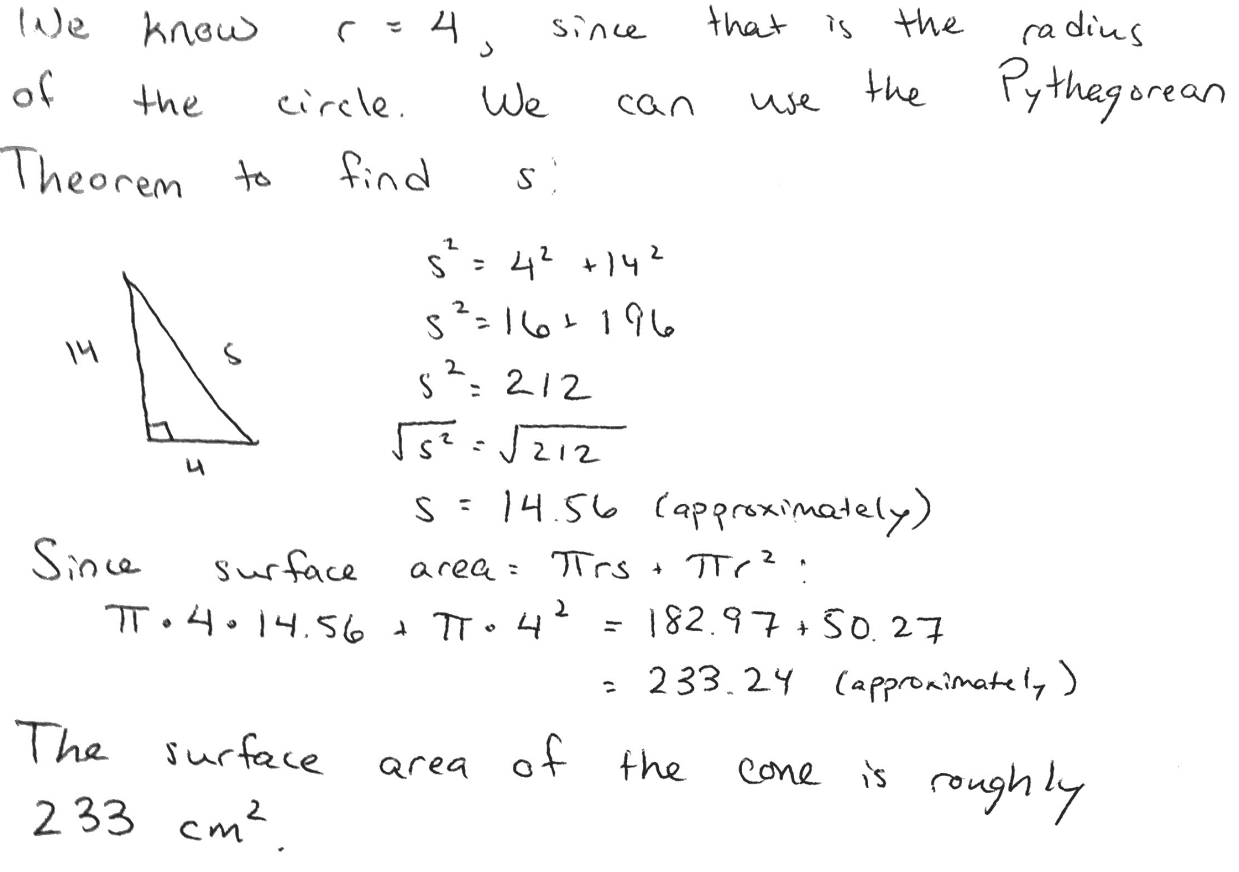 We know r = 4, since that is the radius
of the circle. We can use the Pythagorean
Theorem to find s:
s² = 4² + 14²
s² = 16 + 196
14
s
s² = 212
√s² = √212
4
s = 14.56 (approximately)
Since surface area = πrs + πr²:
π · 4 · 14.56 + π · 4² = 182.97 + 50.27
= 233.24 (approximately)
The surface area of the cone is roughly
233 cm².